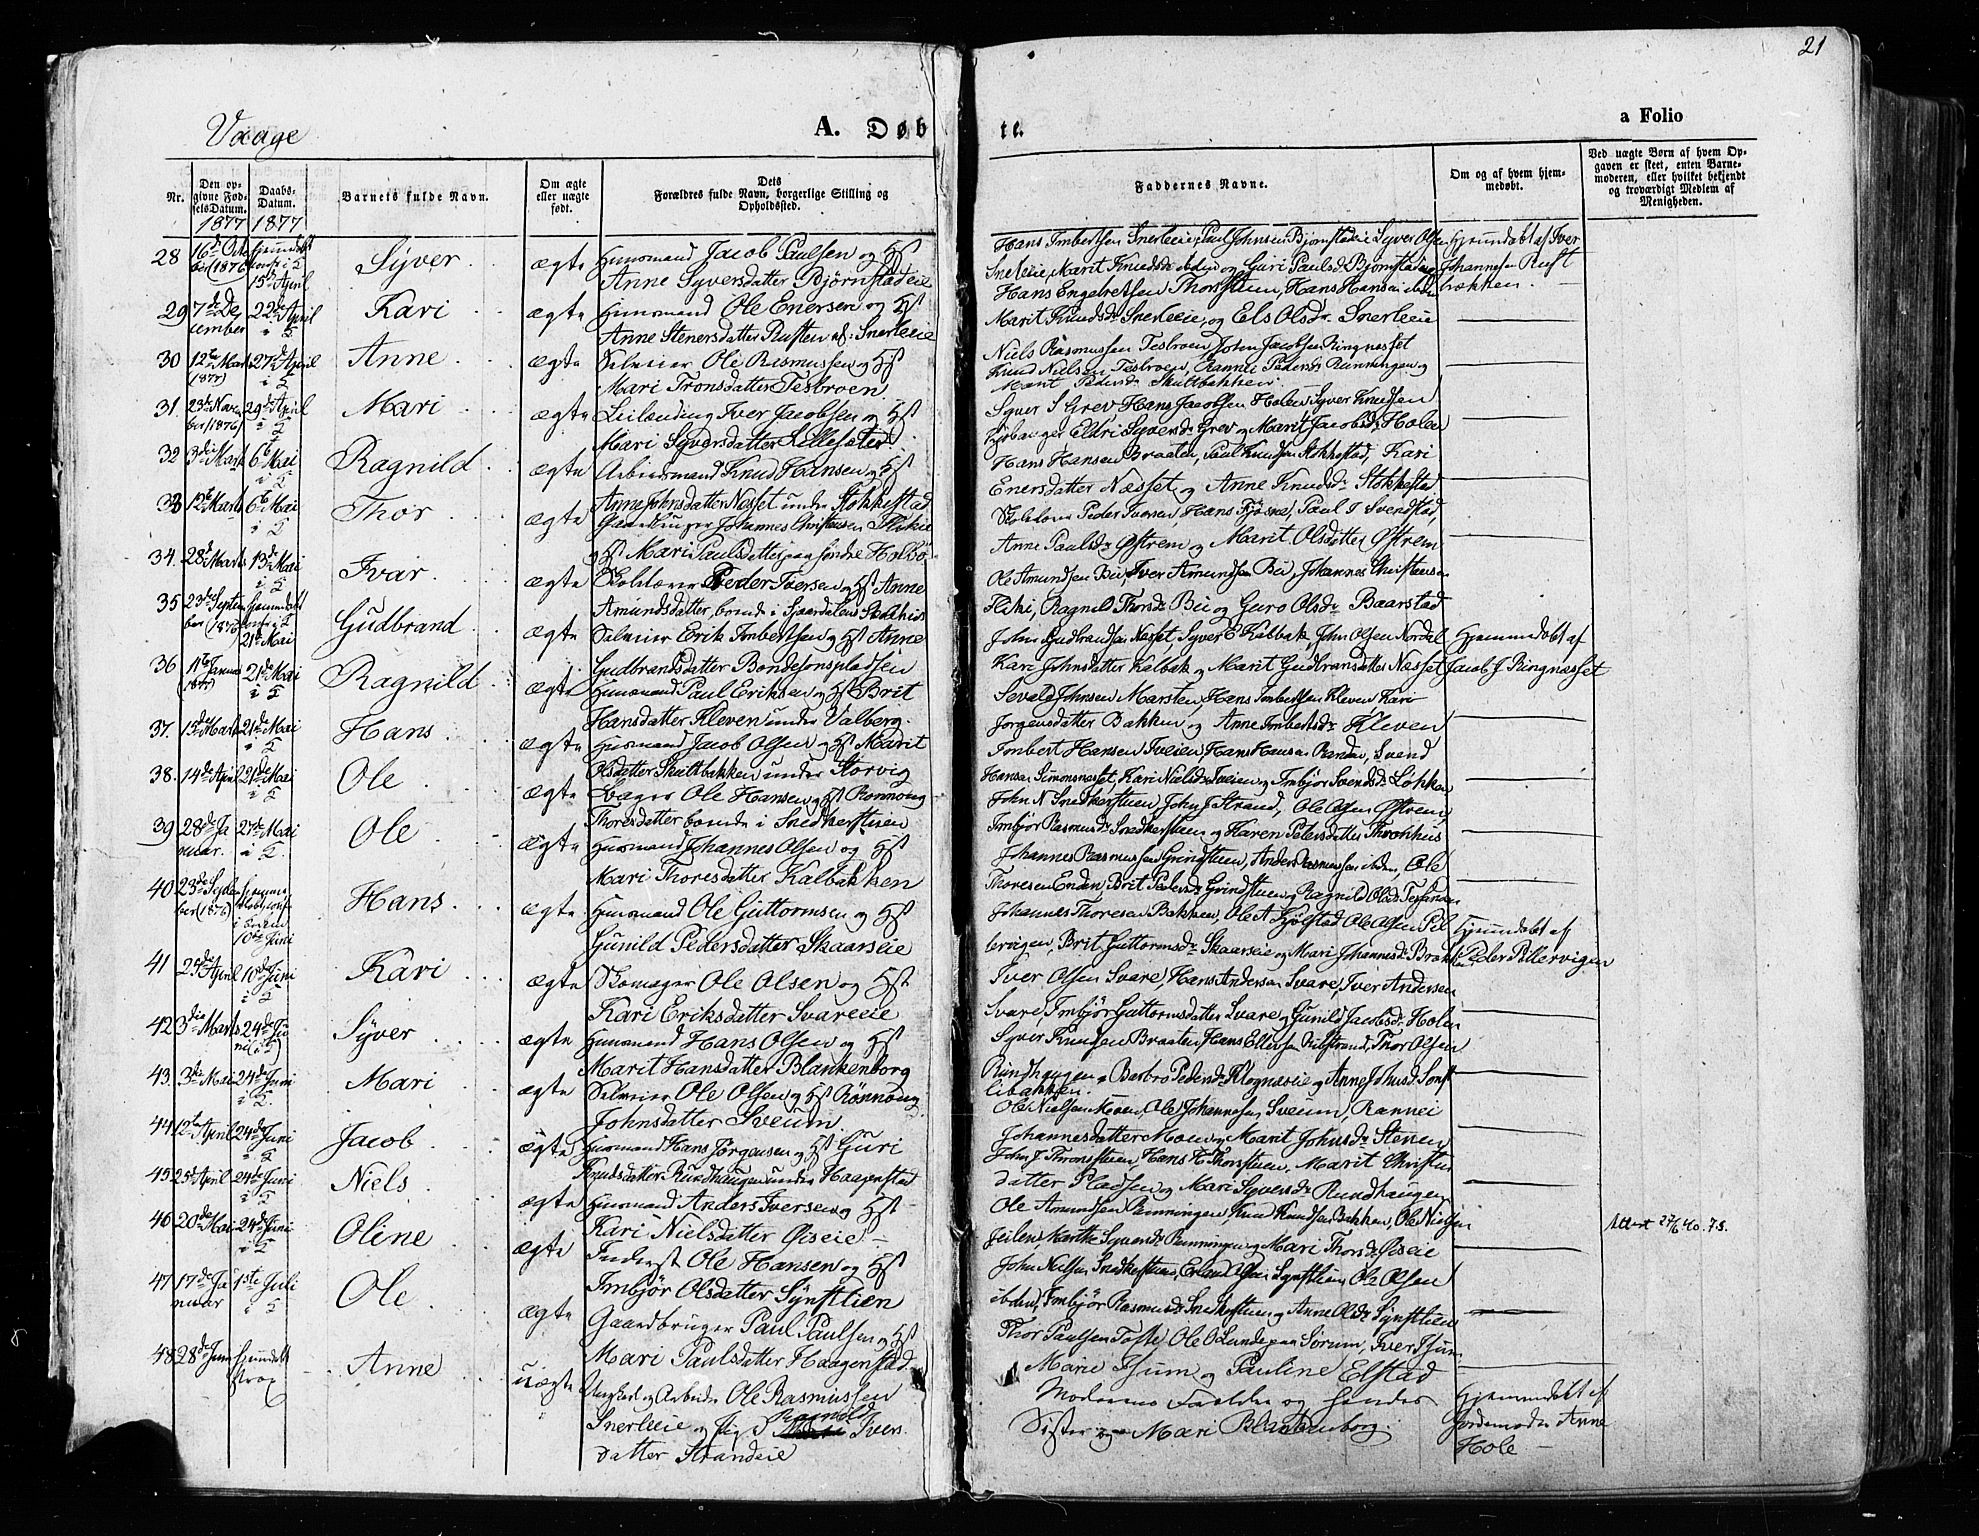 21
Vaage
A. Døb
te.
a Folio
Nr.
Den op-
givne Fød-
selsDatum.
1877
Daabs-
Datum.
1877
Barnets fulde Navn.
Om ægte
eller uægte
født.
Dets
Forældres fulde Navn, borgerlige Stilling og
Opholdssted.
Faddernes Navne.
Om og af hvem hjem-
medøbt.
Ved uægte Børn af hvem Op-
gaven er skeet, enten Barne-
moderen, eller hvilket bekjendt
og troværdigt Medlem af
Menigheden.
28
15de April
Syver
ægte
Husmand Jacob Paulsen og Hst
Anne Syversdatter Bjørnstadeie
Hans Imbertsen Snerleeie, Paul Johnsen Bjørnstadeie Syver Olsen
Snerleeie, Marit Knudsdr ibden og Guri Paulsdr Bjørnstadeie
Hjemmedøbt af Iver
Johannesen Rust
bakken.
29
7de De
cember
22de April
i K
Kari
ægte
Husmand Ole Enersen og Hst
Anne Stenersdatter Rusten ell. Snerleeie
Hans Engebretsen Thorsteuen, Hans Hansen ibden
Marit Knudsdr Snerleeie, og Els Olsdr Snerleeie
30
12te Marts
(1877)
27de April
Anne
ægte
Selveier Ole Rasmussen og Hst
Mari Tronsdatter Tesbroen
Niels Rasmussen Tesbroen, John Jacobsen Ringnesset
Knud Nielsen Tesbroen, Rannei Pedersdr Rumningen og
Marit Pedersdr Skultbakken
31.
23de Novem
ber (1876)
29de April
Mari
ægte
Leilænding Iver Jacobsen og Hst
Mari Syversdatter Lillesæter
Syver S Grev Hans Jacobsen Holen Syver Knudsen
Eldri Syversdr Grev og Marit Jacobsdr Holen
32
3die Marts
6te Mai
Ragnild
ægte
Arbeidsmand Knud Hansen og Hst
Anne Johnsdatter Nesset under Stokkestad
Hans Hansen Braaten, Paul Knudsen Stokkestad, Kari
Enersdatter Nesset og Anne Knudsdr Stokkestad
33
12te Marts
6te Mai
Thor
ægte
Gaardbruger Johannes Christensen Flikie
og Hst Mari Paulsdatter paa søndre Holbø
Skolelærer Peder Iversen Hans Fjøsne, Paul I Svendstad,
Anne Paulsdr Øfstrem og Marit Olsdatter Øfstrem
34.
28de Marts
13de Mai
Ivar
ægte
Skolelærer Peder Iversen og Hst Anne
Amundsdatter, boende i Sjaardalens Skolehus
Ole Amundsen Bu, Iver Amundsen Bu, Johannes Christensen
Fliki, Ragnild Thorsdr Bu og Guro Olsdr Baarstad
35
23de Septem
ber (1876)
21de Mai
Gudbrand
ægte
Selveier Erik Imbertsen og Hst Anne
Gudbrandsdatter Bondesønspladsen
John Gudbrandsen Nesset, Syver E Kalbak, John Olsen Nordal
Kari Johnsdatter Kalbak og Marit Gudbransdatter Nesset
Hjemmedøbt af
Jacob J Ringnesset
36
11te Januar
(1877)
21de Mai
Ragnild
ægte
Husmand Paul Eriksen og Hst Brit
Hansdatter Kleven under Valberg.
Sevald Johnsen Marsten, Hans Imbertsen Kleven, Kari
Jørgensdatter Bakken og Anne Imbertsdr Kleven
37.
15de Marts
21de Mai
Hans
ægte
Husmand Jacob Olsen og Hst Marit
Olsdatter Skultbakken under Storvig
Imbert Hansen Tveien, Hans Hansen Randen, Svend
Hansen Simonsnesset, Kari Nielsdr Tveien og Imbjør Svendsdr Løkken
38.
14de April
21de Mai
Ole
ægte
Bager Ole Hansen og Hst Rønnoug
Thoresdatter boende i Snedkerstuen
John N Snedkerstuen, John J Strand, Ole Olsen Øfstrem
Imbjør Rasmusdr Snedkerstuen og Karen Petersdatter Thronhus
39
28de Ja
nuar.
27de Mai
Ole
ægte
Husmand Johannes Olsen og Hst
Mari Thoresdatter Kalbakken
Johannes Rasmussen Grindstuen, Anders Rasmussen ibden, Ole
Thoresen Enden, Brit Pedersdr Grindstuen og Ragnild Olsdr Tessanden
40
23de Septem
ber (1876)
10de Juni
Hans
ægte
Husmand Ole Guttormsen og Hst
Gunild Pedersdatter Skaarseie
Johannes Thoresen Bakken, Ole A Kjølstad Ole Olsen Pil
lervigen, Brit Guttormsdr Skaarseie og Mari Johannesdr Brakken
Hjemmedøbt af
Peder Pillervigen
41
25de April
10de Juni
Kari
ægte
Skomager Ole Olsen og Hst
Kari Eriksdatter Svareeie
Iver Olsen Svare, Hans Andersen Svare, Iver Andersen
Svare, Imbjør Guttormsdatter Svare og Gunild Jacobsdr Holen
42
3die Marts
24de Ju
ni
Syver
ægte
Husmand Hans Olsen og Hst
Marit Hansdatter Blankenborg
Syver Knudsen Braaten, Hans Ellevsen Vilstrand, Thor Olsen
Rundhaugen og Barbro Pedersdr Klognæseie og Anne Johnsdr Sønst
libakken.
43.
3die Mai
24de Juni
Mari
ægte
Selveier Ole Olsen og Hst Rønnoug
Johnsdatter Sveum.
Ole Nielsen Moen, Ole Johannesen Sveum, Rannei
Johannesdatter Moen og Marit Johnsdr Stenen
44
12te April
24de Juni
Jacob
ægte
Husmand Hans Jørgensen og Hst Guri
Knudsdatter Rundhaugen under Haagenstad
John J Thronstuen, Hans H Thorsteuen, Marit Christens
datter Pladsen og Mari Syversdr Rundhaugen
45
25de April
24de Juni
Niels
ægte
Husmand Anders Iversen og Hst
Kari Nielsdatter Øiseie
Ole Amundsen Rumningen, Knud Knudsen Bakken, Ole Nielsen
Marthe Syversdr Rumningen og Mari Thorsdr Øiseie
46
20de Mai
24de Juni
Oline
ægte
Inderst Ole Hansen og Hst
Imbjør Olsdatter Synstlien
John Nielsen Snedkerstuen, Erland Olsen Synstlien, Ole Olsen
ibden, Imbjør Rasmusdr Snedkerstuen og Anne Olsdr Synstlien
Attest 27/6 40. 7S.
47
17de Ja
nuar
1ste Juli
Ole
ægte
Gaardbruger Paul Paulsen og Hst
Mari Paulsdatter Haagenstad.
Thor Paulsen Tofte, Ole O Lunde paa Sørum, Iver Isum
Marie Isum og Pauline Elstad
48
28de Juni
Hjemmedøbt
strax
Anne
uægte
Ungkarl og Arbeider Ole Rasmussen
Snerleeie og Pige Ragnild Ivers
datter Strandeie
Moderens Forældre og hendes
Søster og Mari Blankenborg.
Hjemmedøbt af
Jordemoder Anne
Hole